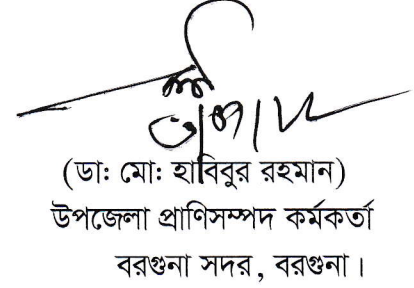 (ডা: মো: হাবিবুর রহমান)
উপজেলা প্রাণিসম্পদ কর্মকর্তা
বরগুনা সদর, বরগুনা।